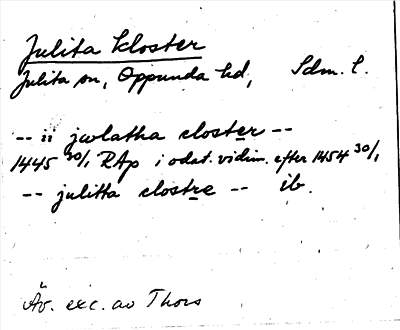 Julita kloster
Julita sn, Oppunda hd, Sdm. l.
-- ii jwlatha closter --
1445 30/1 RAp i odat. vidim. efter 1454 30/1
-- julitta clostre -- ib.
Äv. exc. av Thors